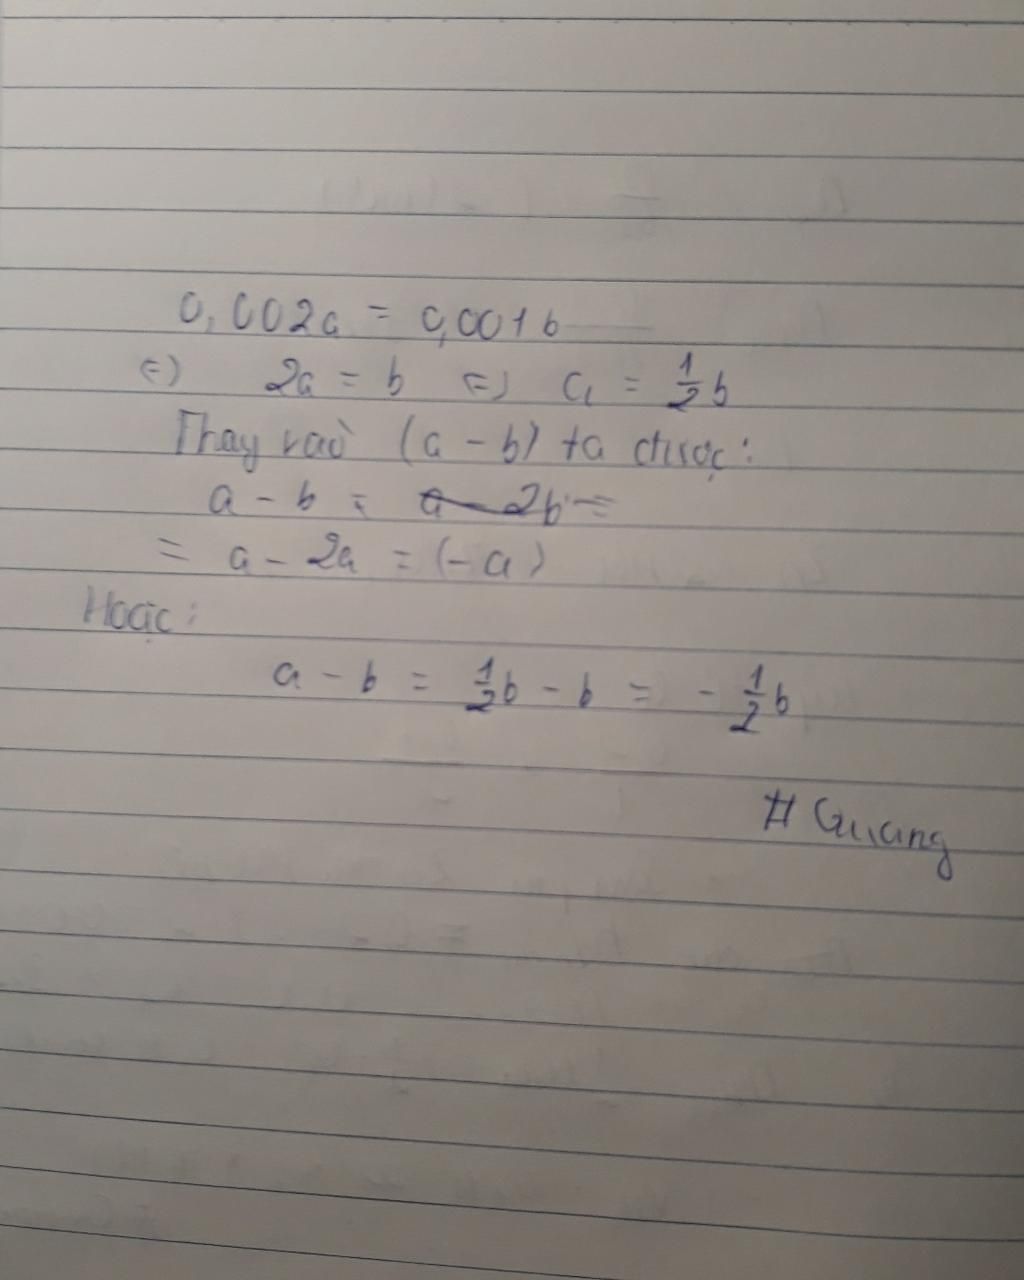 0,002a = 0,001b
⇔ 2a = b ⇔ a = 1/2 b
Thay vào (a - b) ta được:
a - b = a - 2b =
= a - 2a = (-a)
Hoặc:
a - b = 1/2 b - b = - 1/2 b
# Quang